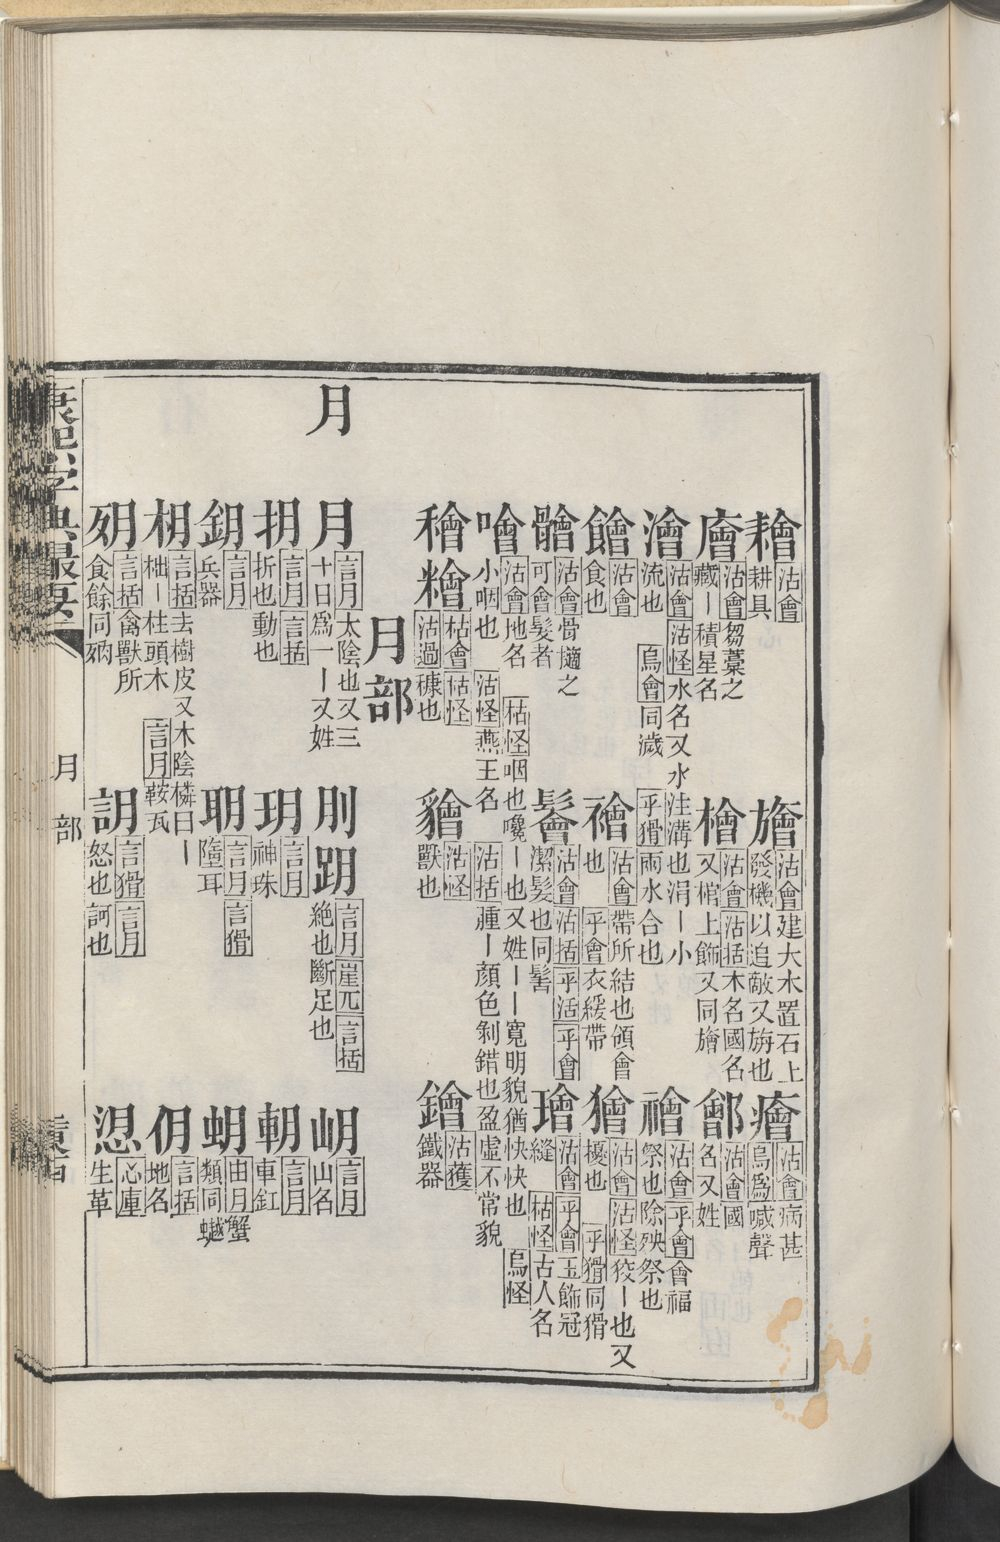 䆐 沽會 耕具 旝 沽會 建大木置石上發機以追敵又旃也 癐 沽會 病甚 烏爲 喊聲
廥 沽會 芻藁之藏丨積星名 檜 沽會 沽括 木名國名又棺上飾又同旝 鄶 沽會 國名又姓
澮 沽會 沽怪 水名又水注溝也涓丨小流也 烏會 同濊 乎猾 兩水合也 禬 沽會 乎會 會福祭也除殃祭也
餽 沽會 食也 襘 沽會 帶所結也領會也 乎會 衣緩帶 獪 沽會 沽怪 狡丨也又㹛也 乎猾 同猾
髖 沽會 骨擿之可會髮者 鬠 沽會 沽括 乎活 乎會 潔髮也同髻 璯 沽會 乎會 玉飾冠縫 枯怪 古人名
噲 沽會 地名 枯怪 咽也嚵丨也又姓丨丨寬明貌猶快快也 烏怪 小咽也 沽怪 燕王名 沽括 㾏丨顏色剝錯也盈虛不常貌
穭 糩 枯會 枯怪 沽過 穅也 獪 沽怪 獸也 鐱 沽獲 鐵器
月部
月
月 言月 太陰也又三十日爲一丨又姓 刖 跀 言月 崖兀 言括 絶也斷足也 岄 言月 山名
抈 言月 言括 折也動也 玥 言月 神珠 軏 言月 車釭
鈅 言月 兵器 聅 言月 言猾 墮耳 蚏 由月 蟹類同蠘
枂 言括 去樹皮又木陰檇曰丨柮丨柱頭木 言月 鞍瓦 仴 言括 地名
歾 言括 禽獸所食餘同㱙 詽 言猾 言月 怒也訶也 㴽 心庫 生革
康熙字典撮要
月部